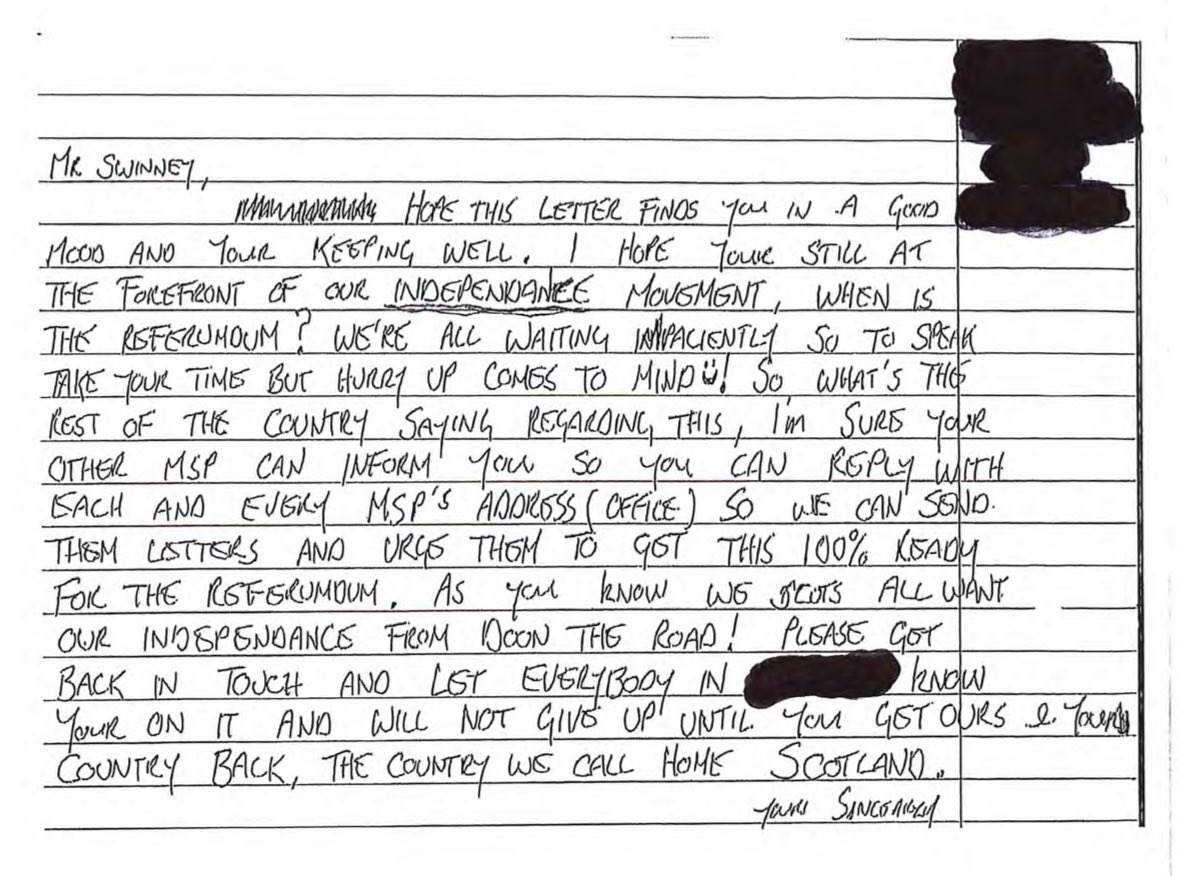 MR SWINNEY,
HOPE THIS LETTER FINDS YOU IN A GOOD
MOOD AND YOUR KEEPING WELL. I HOPE YOUR STILL AT
THE FOREFRONT OF OUR INDEPENDANCE MOVEMENT, WHEN IS
THE REFERUMDUM? WE'RE ALL WAITING IMPACIENTLY SO TO SPEAK
TAKE YOUR TIME BUT HURRY UP COMES TO MIND! SO WHAT'S THE
REST OF THE COUNTRY SAYING REGARDING THIS, I'm SURE YOUR
OTHER MSP CAN INFORM YOU SO YOU CAN REPLY WITH
EACH AND EVERY MSP'S ADDRESS (OFFICE) SO WE CAN SEND.
THEM LETTERS AND URGE THEM TO GET THIS 100% READY
FOR THE REFERUMDUM. AS YOU KNOW WE SCOTS ALL WANT
OUR INDEPENDANCE FROM DOON THE ROAD! PLEASE GET
BACK IN TOUCH AND LET EVERYBODY IN KNOW
YOUR ON IT AND WILL NOT GIVE UP UNTIL YOU GET OURS & YOUR
COUNTRY BACK, THE COUNTRY WE CALL HOME SCOTLAND.
YOURS SINCERELY